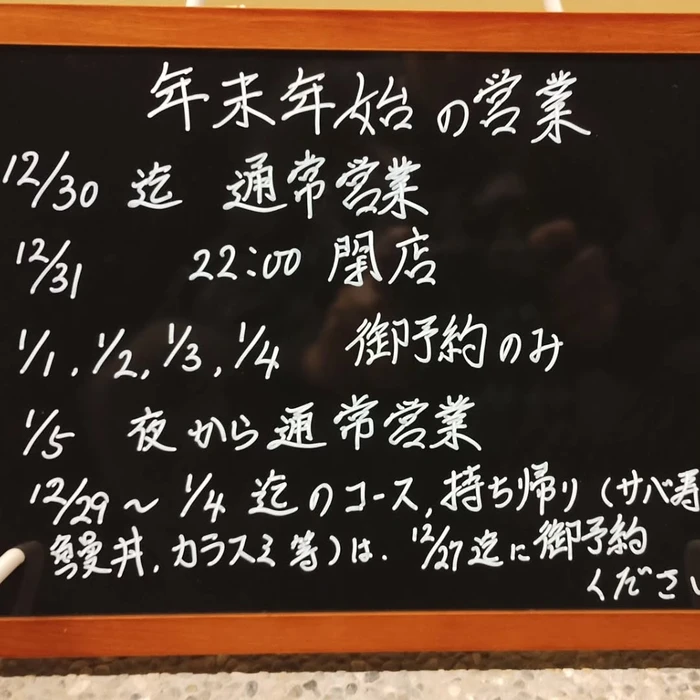 年末年始の営業
12/30 迄 通常営業
12/31 22:00 閉店
1/1, 1/2, 1/3, 1/4 御予約のみ
1/5 夜から通常営業
12/29〜1/4 迄のコース, 持ち帰り (サバ寿
鰻丼, カラスミ等)は. 12/27迄に御予約
くださ